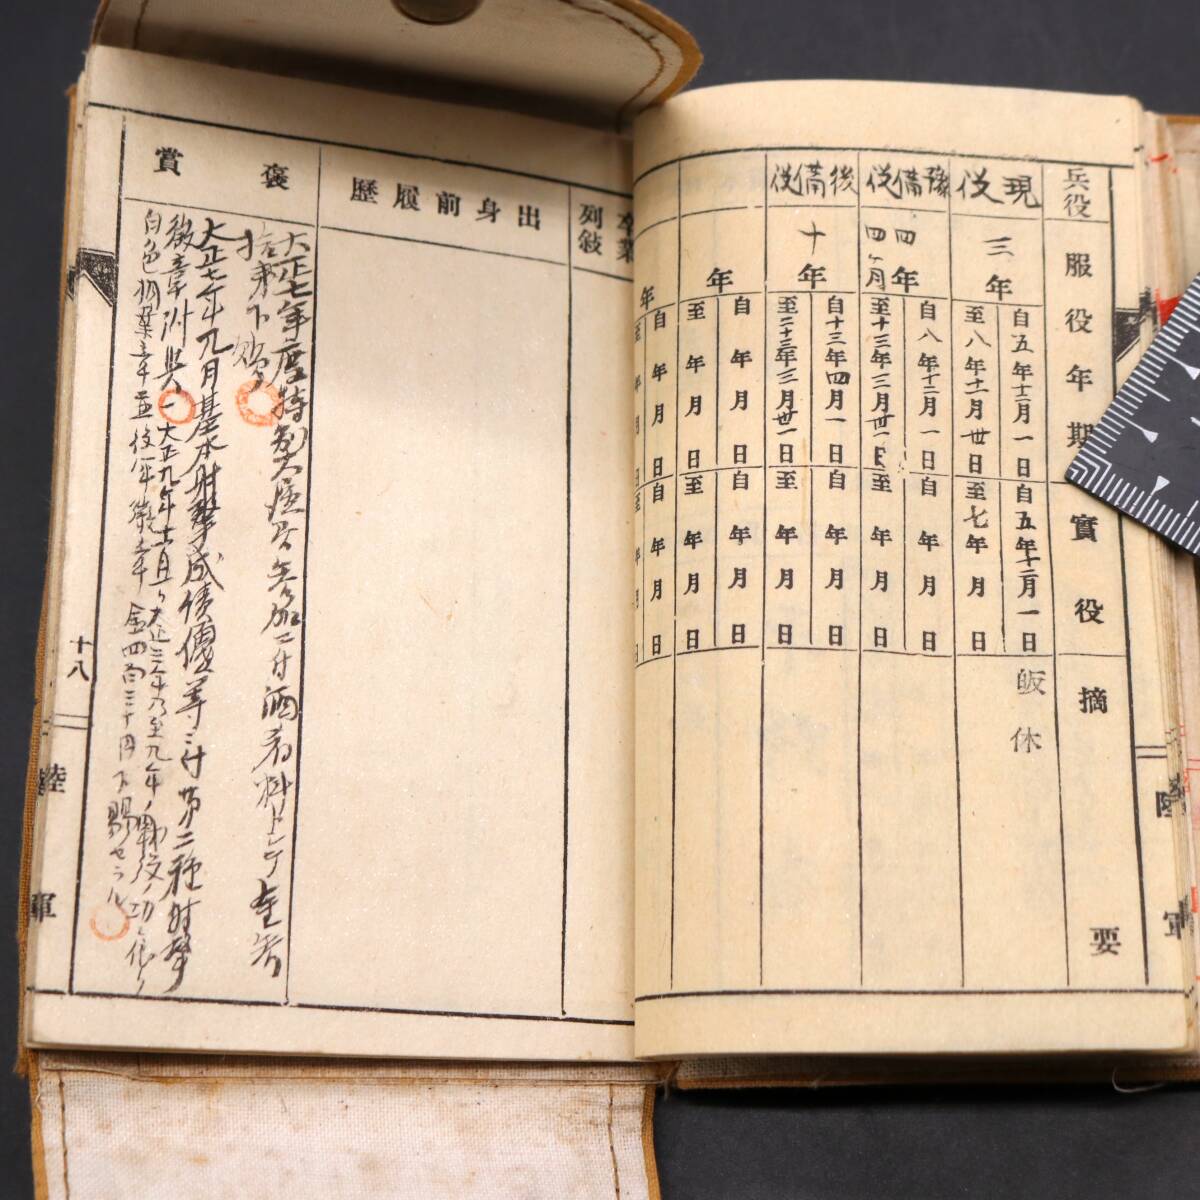 兵役
服役年期
實役
摘要
現役
三年
自五年十二月一日
至八年十一月卅日
自五年十二月一日
至七年 月 日
皈休
豫備役
四年四ヶ月
自八年十二月一日
至十三年三月卅一日
自 年 月 日
至 年 月 日
後備役
十年
自十三年四月一日
至二十三年三月卅一日
自 年 月 日
至 年 月 日
年
自 年 月 日
至 年 月 日
自 年 月 日
至 年 月 日
年
自 年 月 日
至 年 月 日
自 年 月 日
至 年 月 日
陸軍
卒業
列敍
出身前履歷
褒賞
大正七年度特
酒肴料トシテ金
下賜
大正七年九月基本射擊成績優等ニ付第二種射擊
徽章附與
大正九年十一月一日大正三年乃至九年ノ戰役ノ功ニ依リ
白色桐葉章並從軍徽章金四百三十円下賜セラル
十八
陸軍